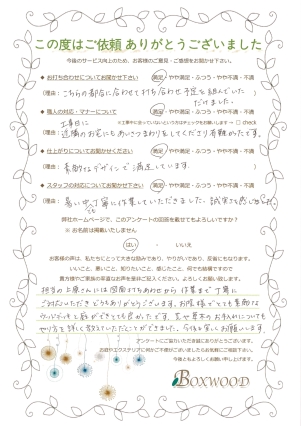 この度はご依頼 ありがとうございました
今後のサービス向上のため、お客様のご意見・ご感想をお聞かせ下さい。
◆ お打ち合わせについてお聞かせ下さい 満足・やや満足・ふつう・やや不満・不満
(理由: こちらの都合に合わせて打ち合わせ予定を組んでいただけました。
◆ 職人の対応・マナーについて 満足・やや満足・ふつう・やや不満・不満
※工事中に立っていないという方はチェックをお願いします → □ check
(理由: 工事日に
近隣のお宅にもあいさつまわりをしてくださり有難かったです。
◆ 仕上がりについてお聞かせください 満足・やや満足・ふつう・やや不満・不満
(理由: 素敵なデザインで満足しています。
◆ スタッフの対応についてお聞かせ下さい 満足・やや満足・ふつう・やや不満・不満
(理由: 暑い中でも丁寧に作業していただきました。誠実さを感じました。
弊社ホームページで、このアンケートの回答を載せてもよろしいですか?
※ お名前は掲載いたしません
はい ・ いいえ
お客様の声は、私たちにとって大きな励みであり、やりがいであり、反省にもなります。
いいこと、悪いこと、知りたいこと、感じたこと、何でも結構ですので
貴方様やご家族の率直なお声を是非ご記入ください。よろしくお願い致します。
担当の上原さんには図面打ち合わせから作業まで丁寧に
ご対応いただきどうもありがとうございます。お陰様でとても素敵な
ウッドデッキと庭ができてとても良かったです。芝や草木のお手入れについても
やり方を詳しく教えていただくことができました。今後も宜しくお願いします。
アンケートにご協力いただき誠にありがとうございます。
お庭やエクステリアに何かご不便がございましたらお気軽にご相談下さい。
今後ともよろしくお願い申し上げます。
BOXWOOD